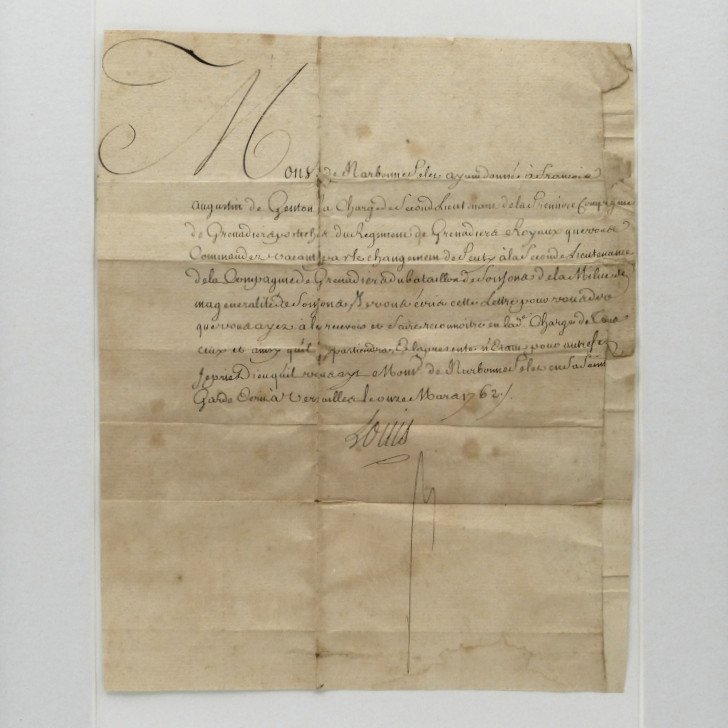 Mons. de Narbonne Pelet ayant donné à François
Augustin de Genton la Charge de Second Lieutenant de la Premiere Compagnie
de Grenadiers postiches du Regiment de Grenadiers Royaux que vous
Commandez vacant par le changement de à la Seconde Lieutenance
de la Compagnie de Grenadiers du bataillon de Soissons de la Milice de
ma generalité de Soissons Je vous écris cette Lettre pour vous dire
que vous ayez à le recevoir et faire reconnoitre en lad.e Charge de tous
ceux et ainsy qu'il appartiendra, Et la presente n'étant pour autre fin
Je prie Dieu qu'il vous ayt Mons.r de Narbonne Pelet en sa Sainte
Garde Ecrit à Versailles le onze Mars 1762 ./.
Louis